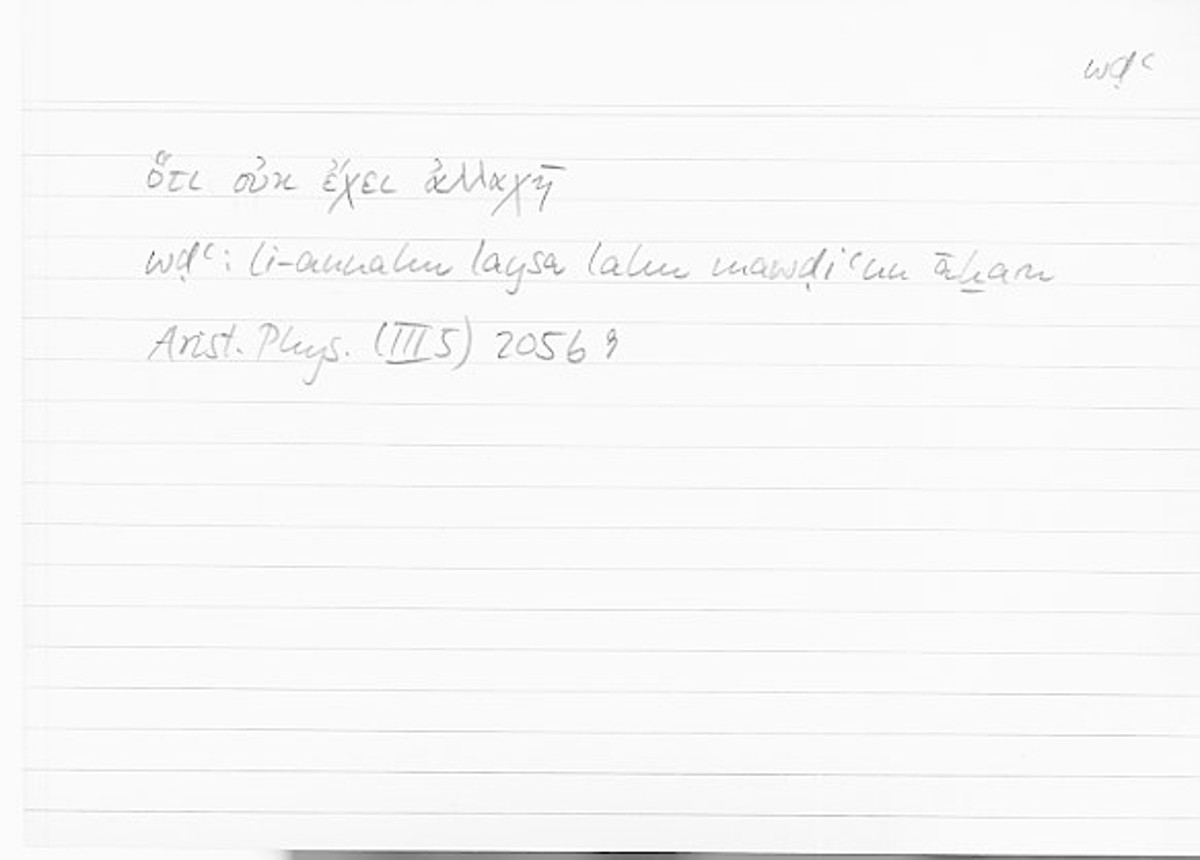 wḍʿ
ὅτι οὐκ ἔχει ἀλλαχῆ
wḍʿ: li-annahu laysa lahu mawḍiʿun āḫaru
Arist. Phys. (III 5) 205b 9